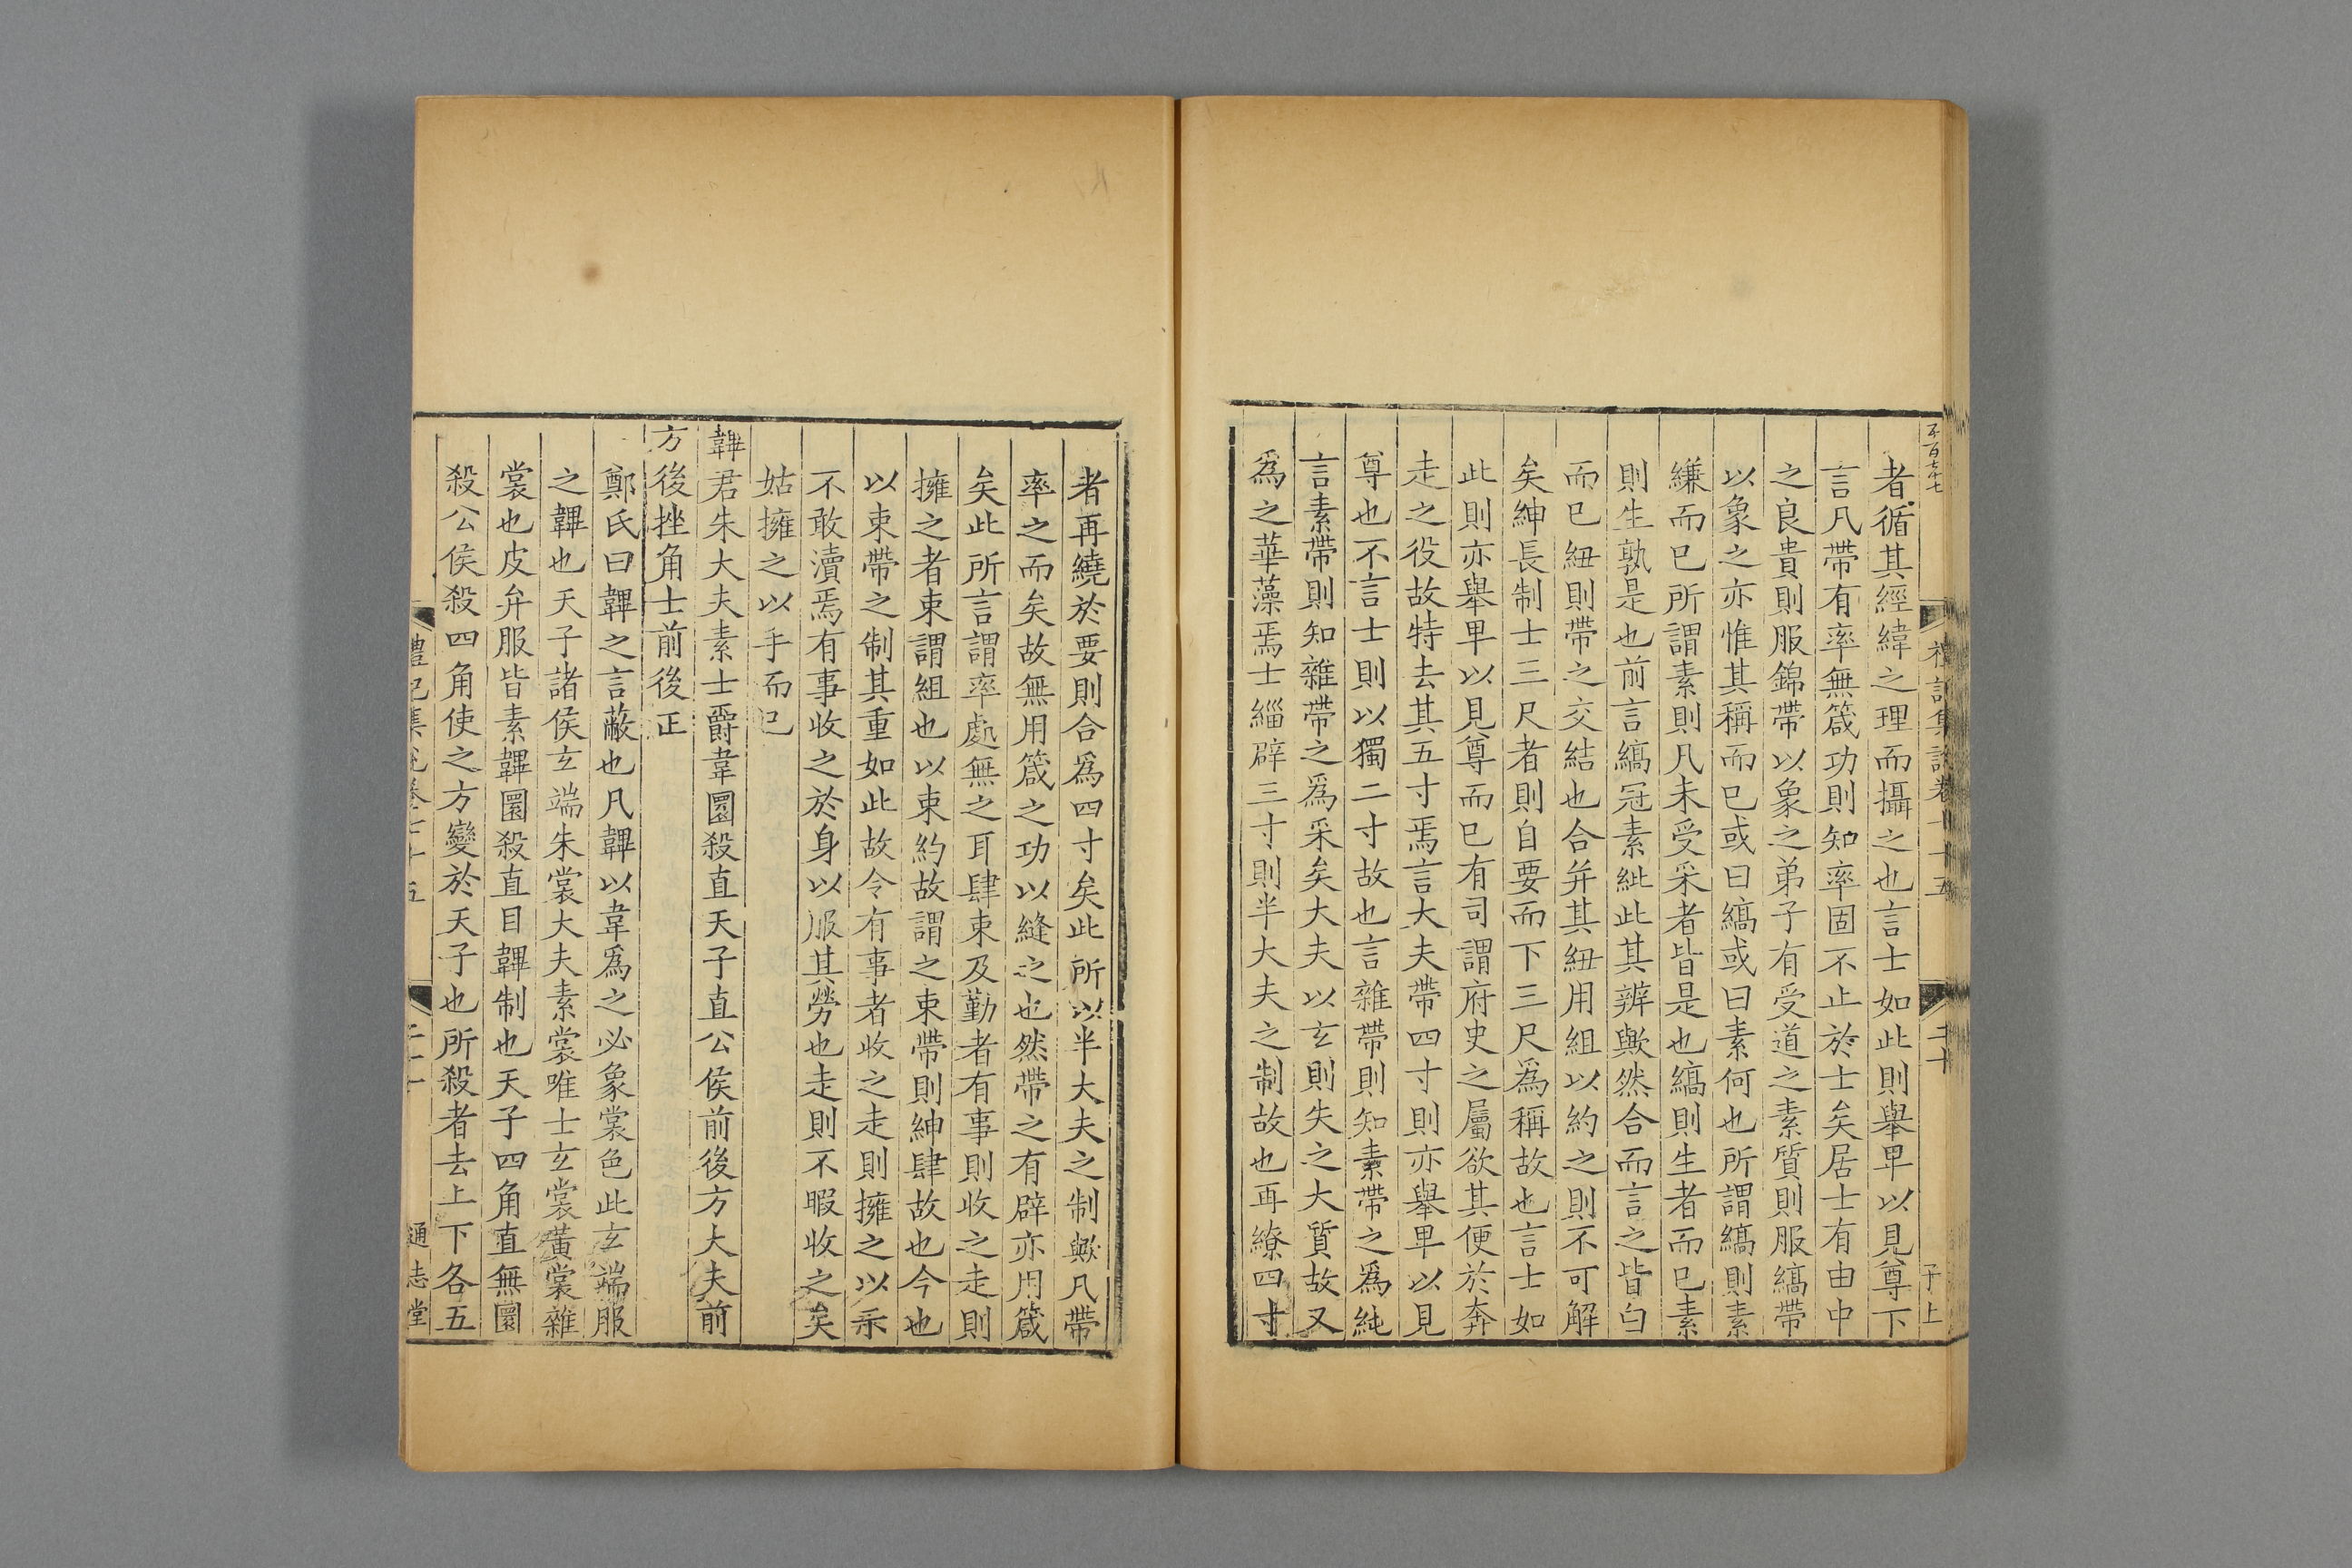 者循其經緯之理而攝之也言士如此則舉卑以見尊下
言凡帶有率無箴功則知率固不止於士矣居士有由中
之良貴則服錦帶以象之弟子有受道之素質則服縞帶
以象之亦惟其稱而已或曰縞或曰素何也所謂縞則素
縑而已所謂素則凡未受采者皆是也縞則生者而已素
則生孰是也前言縞冠素紕此其辨歟然合而言之皆白
而已紐則帶之交結也合并其紐用組以約之則不可解
矣紳長制士三尺者則自要而下三尺為稱故也言士如
此則亦舉卑以見尊而已有司謂府史之屬欲其便於奔
走之役故特去其五寸焉言大夫帶四寸則亦舉卑以見
尊也不言士則以獨二寸故也言雜帶則知素帶之為純
言素帶則知雜帶之為采矣大夫以玄則失之大質故又
為之華藻焉士緇辟三寸則半大夫之制故也再繚四寸
者再繞於要則合為四寸矣此所以半大夫之制歟凡帶
率之而矣故無用箴之功以縫之也然帶之有辟亦用箴
矣此所言謂率處無之耳肆束及勤者有事則收之走則
擁之者束謂組也以束約故謂之束帶則紳肆故也今也
以束帶之制其重如此故令有事者收之走則擁之以示
不敢瀆焉有事收之於身以服其勞也走則不暇收之矣
姑擁之以手而已
韠君朱大夫素士爵韋圜殺直天子直公侯前後方大夫前
方後挫角士前後正
鄭氏曰韠之言蔽也凡韠以韋為之必象裳色此玄端服
之韠也天子諸侯玄端朱裳大夫素裳唯士玄裳黃裳雜
裳也皮弁服皆素韠圜殺直目韠制也天子四角直無圜
殺公侯殺四角使之方變於天子也所殺者去上下各五
通志堂